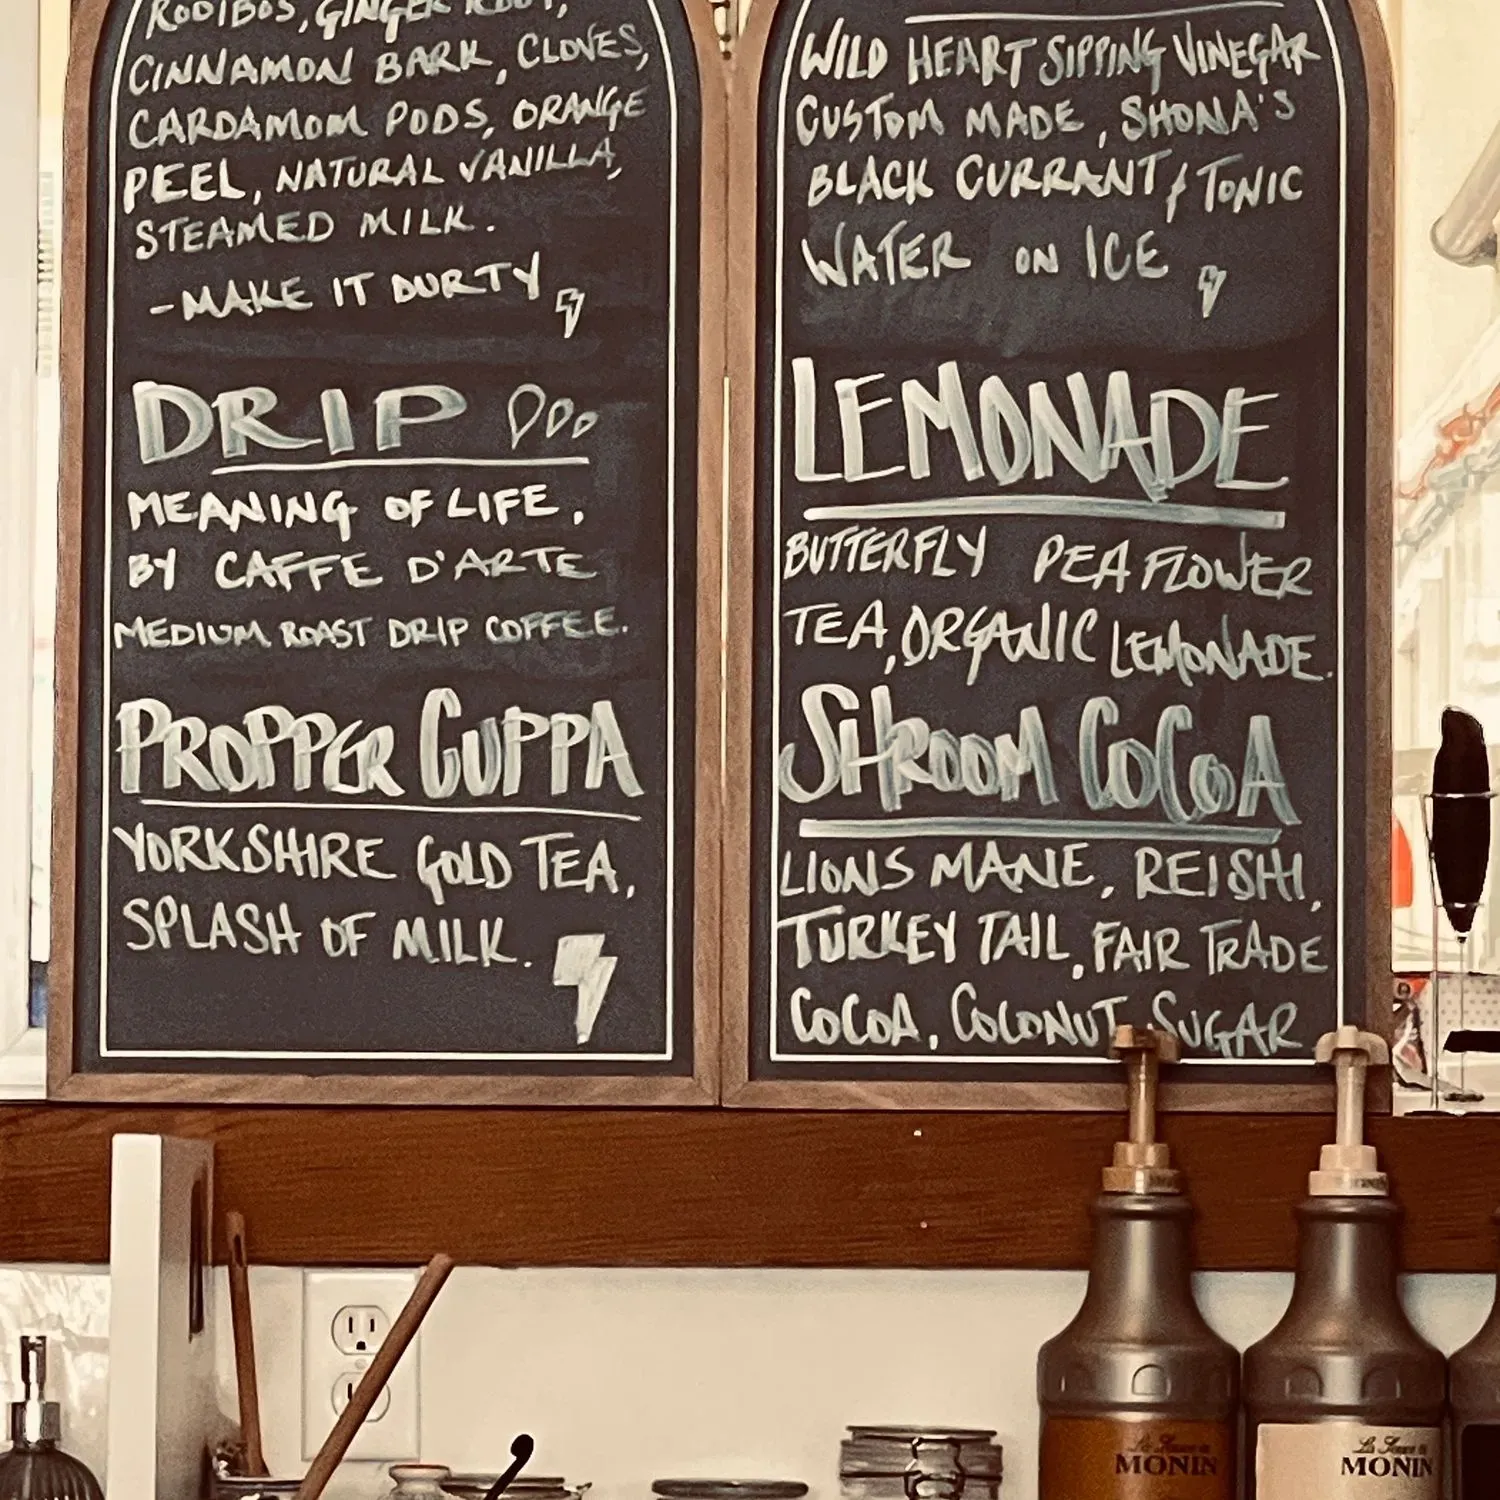 ROOIBOS, GINGER ROOT,
CINNAMON BARK, CLOVES,
CARDAMOM PODS, ORANGE
PEEL, NATURAL VANILLA,
STEAMED MILK.
-MAKE IT DURTY
DRIP
MEANING OF LIFE,
BY CAFFE D'ARTE
MEDIUM ROAST DRIP COFFEE.
PROPPER CUPPA
YORKSHIRE GOLD TEA,
SPLASH OF MILK.
WILD HEART SIPPING VINEGAR
CUSTOM MADE, SHONA'S
BLACK CURRANT & TONIC
WATER ON ICE
LEMONADE
BUTTERFLY PEA FLOWER
TEA, ORGANIC LEMONADE.
SHROOM COCOA
LIONS MANE, REISHI,
TURKEY TAIL, FAIR TRADE
COCOA, COCONUT SUGAR
MONIN
MONIN